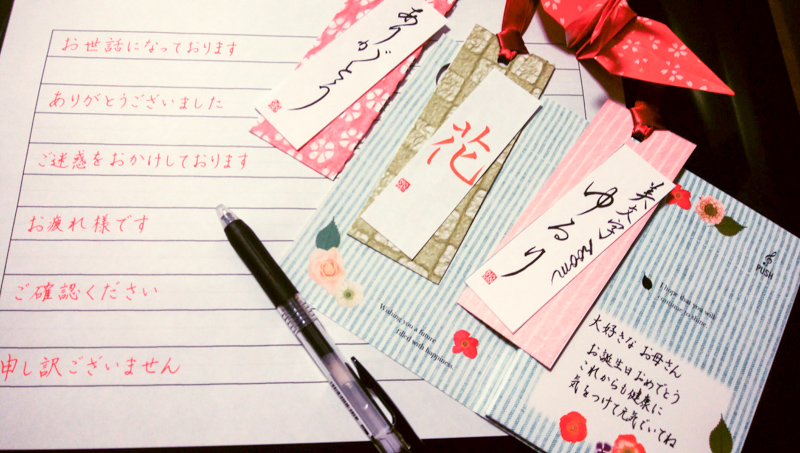 お世話になっております
ありがとうございました
ご迷惑をおかけしております
お疲れ様です
ご確認ください
申し訳ございません
ありがとう
花
美文字room
ゆるり
Wishing you a future
filled with happiness.
I hope that you will
continue to shine
PUSH
大好きな お母さん
お誕生日おめでとう
これからも健康に
気をつけて元気でいてね